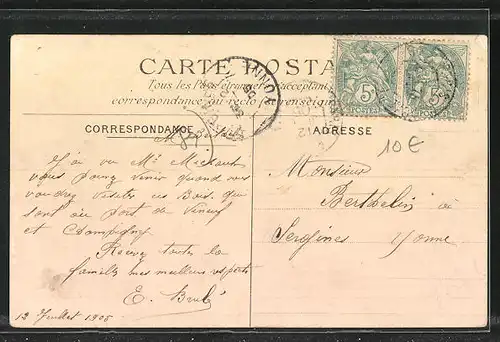 CARTE POSTA
Tous les Pays étrangers n'acceptent
correspondance au recto
CORRESPONDANCE
ADRESSE
10€
J'ai vu Mr Michaut
vous pouvez venir quand vous
voudrez visiter les Bois qui
sont au Port de Vineuf
et Champigny
Recevez toute la
famille mes meilleurs respects
E. Brulé
12 Juillet 1905
Monsieur
Berthelin à
Sergines Yonne
5c 5c
POSTES POSTES
YONNE